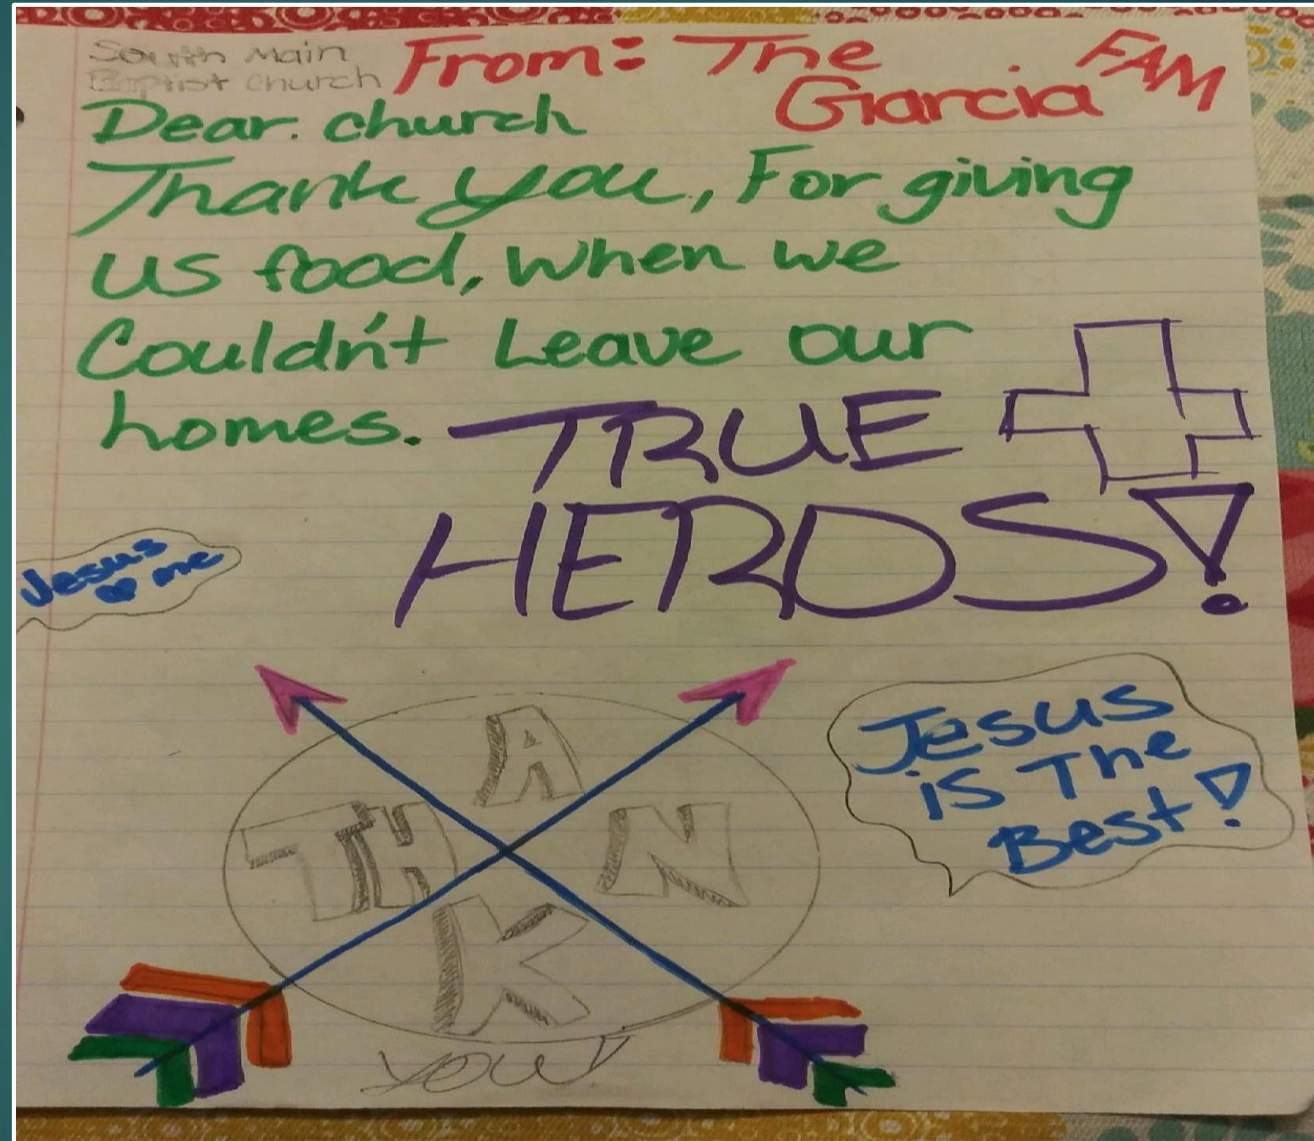 South Main
Baptist Church
From: The
Garcia FAM
Dear. church
Thank you, For giving
us food, when we
Couldn't Leave our
homes.
TRUE
HEROS!
Jesus
♥ me
Jesus
is The
Best!
A
TH N
K
you!